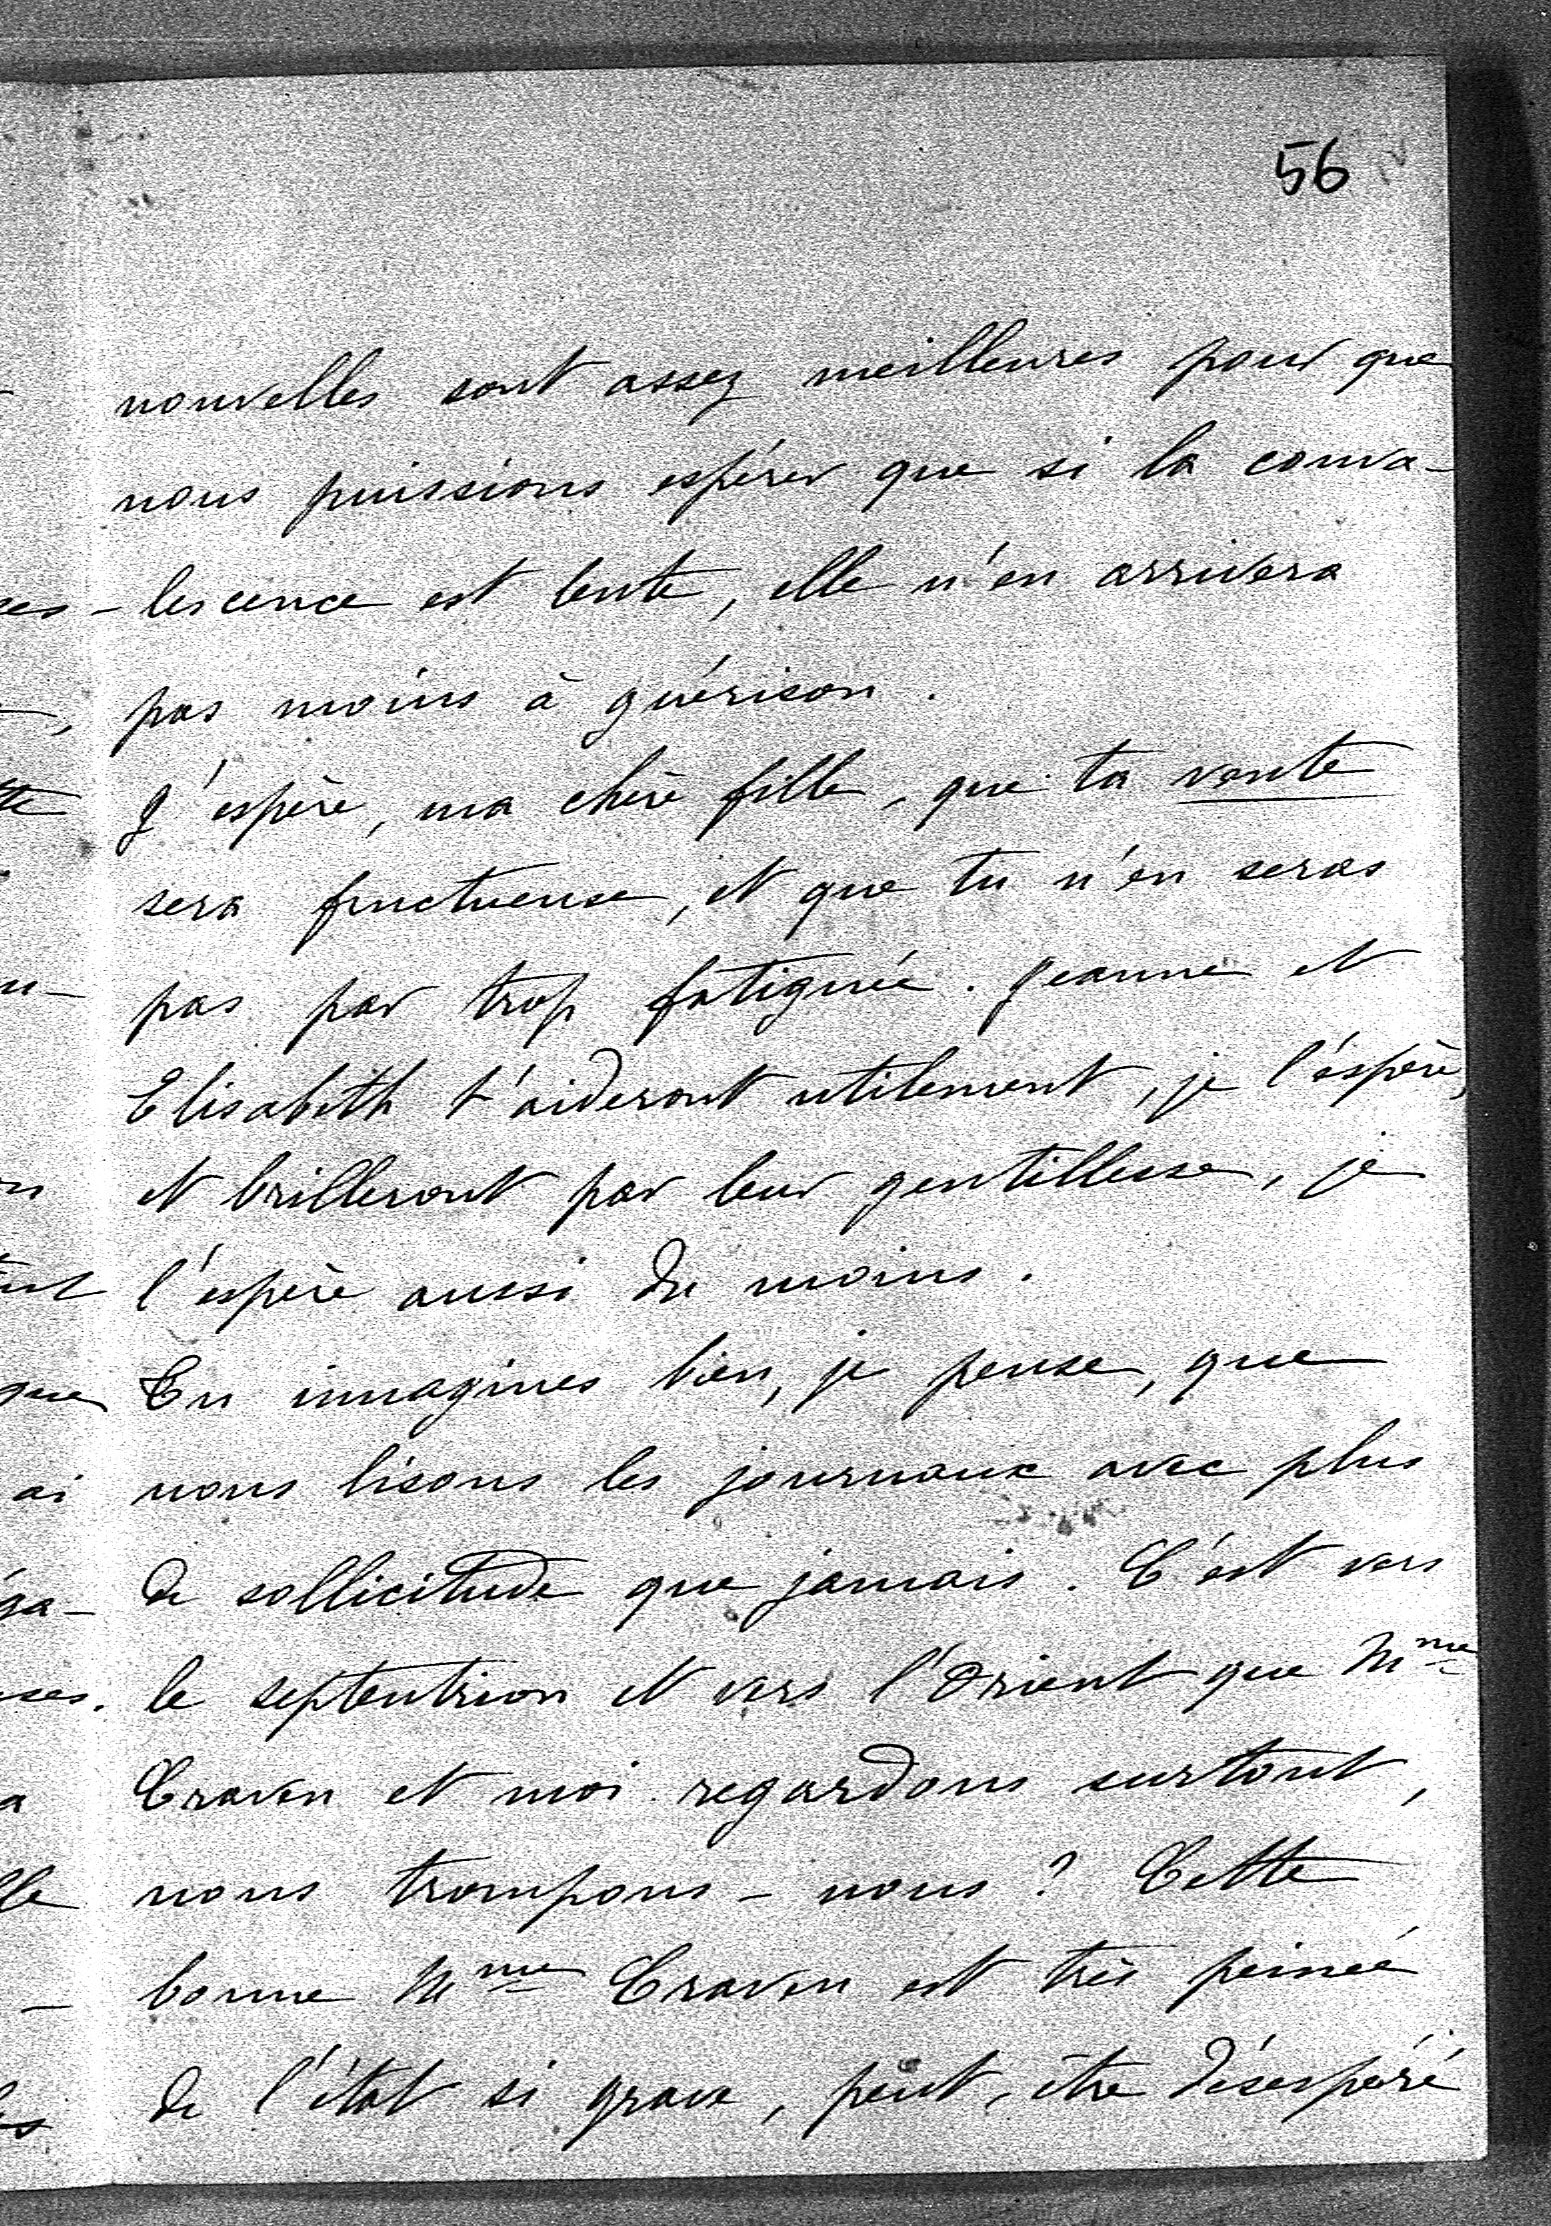 56
nouvelles sont assez meilleures pour que
nous puissions espérer que si la conva-
-lescence est lente, elle n'en arrivera
pas moins à guérison.
J'espère, ma chère fille, que ta vente
sera fructueuse, et que tu n'en seras
pas par trop fatiguée. Jeanne et
Elisabeth t'aideront utilement, je l'espère,
et brilleront par leur gentillesse, je
l'espère aussi du moins.
Tu immagines bien, je pense, que
nous lisons les journaux avec plus
de sollicitude que jamais. C'est vers
le septentrion et vers l'Orient que Mme
Craven et moi regardons surtout,
nous trompons-nous? Cette
bonne Mme Craven est très peinée
de l'état si grave, peut-être désespéré